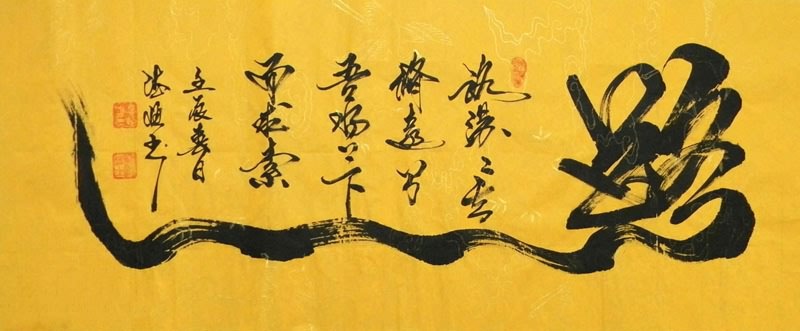 路
路漫漫其
修远兮
吾将上下
而求索
壬辰春日